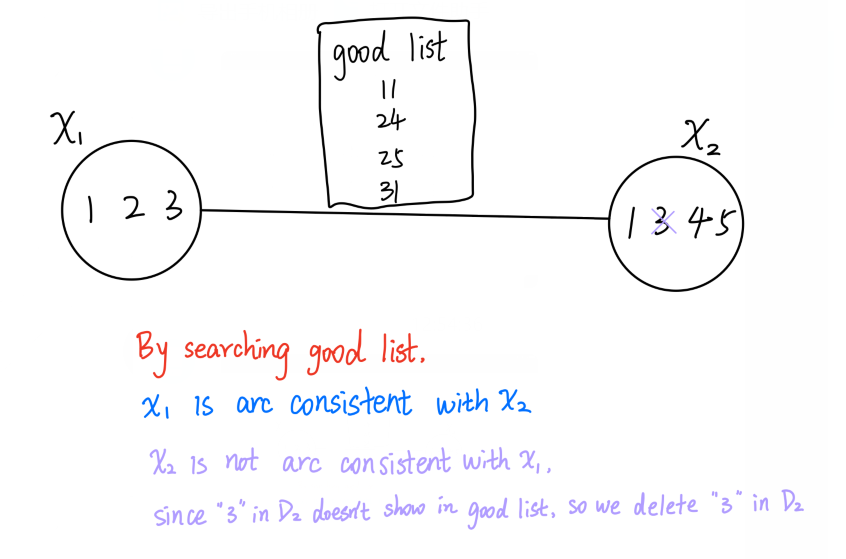 good list
11
24
25
31
X₁
1 2 3
X₂
1 3 4 5
By searching good list.
X₁ is arc consistent with X₂
X₂ is not arc consistent with X₁,
since "3" in D₂ doesn't show in good list, so we delete "3" in D₂